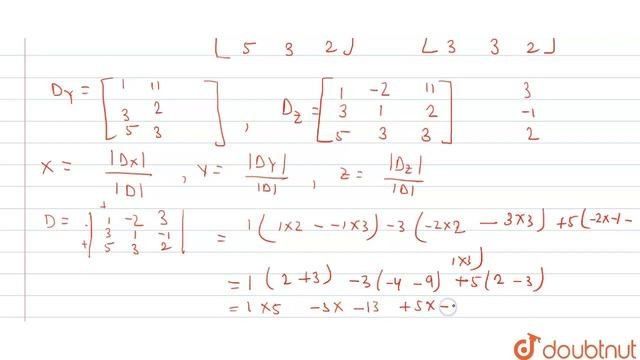 [ 5 3 2 ] [ 3 3 2 ]
Dy = [ 1 11
3 2
5 3 ] , Dz = [ 1 -2 11
3 1 2
5 3 3 ] 3
-1
2
X = |Dx| / |D| , Y = |DY| / |D| , Z = |Dz| / |D|
D = | 1 -2 3
3 1 -1
5 3 2 | = 1 ( 1x2 - -1x3 ) - 3 ( -2x2 - 3x3 ) + 5 ( -2x-1 - 1x3 )
= 1 ( 2+3 ) -3 ( -4 -9 ) +5 ( 2 -3 )
= 1 x5 -3x -13 +5x -
doubtnut